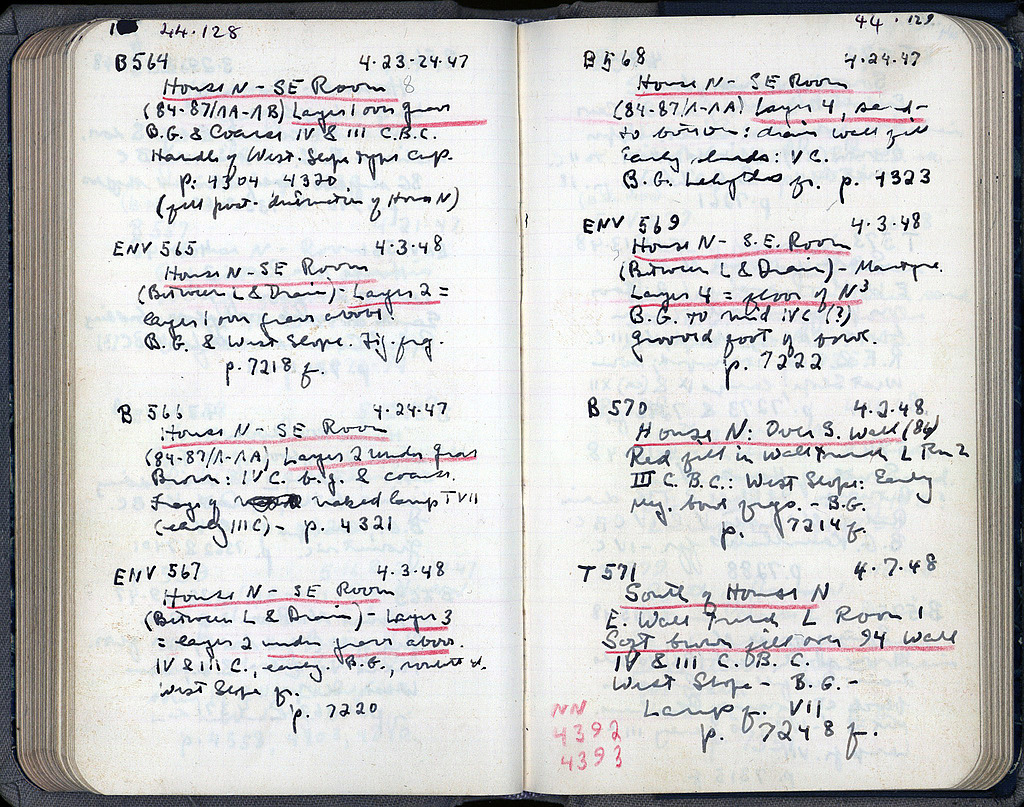 44.128
B 564 4.23-24.47
House N - SE Room 8
(84-87/ΛA-ΛB) Layer 1 over grave
B.G. & Coarse IV & III C.B.C.
Handle of West. Slope type cup.
p. 4304 4320.
(fill post. destruction of House N)
ENV 565 4.3.48
House N - SE Room
(Between L & Drain) - Layer 2 =
layer 1 over grave above.
B.G. & West Slope. Fig. frg.
p. 7218 f.
B 566 4.24.47
House N - SE Room
(84-87/Λ-ΛA) Layer 2 under grave
Brown: IV C. b.g. & coarse.
Frag of naked lamp T VII
(early III C) - p. 4321
ENV 567 4.3.48
House N - SE Room
(Between L & Drain) - Layer 3
= layer 2 under grave above.
IV & III C., early. B.G.,
West Slope fr.
p. 7220
44.129
B 568 4.24.47
House N - SE Room
(84-87/Λ-ΛA) Layer 4, sand-
to bottom: drain wall fill
Early sherds: V C.
B.G. Lekythos fr. p. 4323
ENV 569 4.3.48
House N - S.E. Room
(Between L & Drain) -
Layer 4 = floor of N³
B.G. to mid IV C (?)
grooved foot of bowl.
p. 7222
B 570 4.3.48
House N: Over S. Wall (84)
Red fill in Wall Trench L Rm 2
III C. B.C.: West Slope: Early
Meg. bowl frgs. - B.G.
p. 7214 f.
T 571 4.7.48
South of House N
E. Wall Trench L Room 1
Soft brown fill over 94 Wall
IV & III C. B.C.
West Slope - B.G. -
Lamp fr. VII
p. 7248 f.
NN
4392
4393